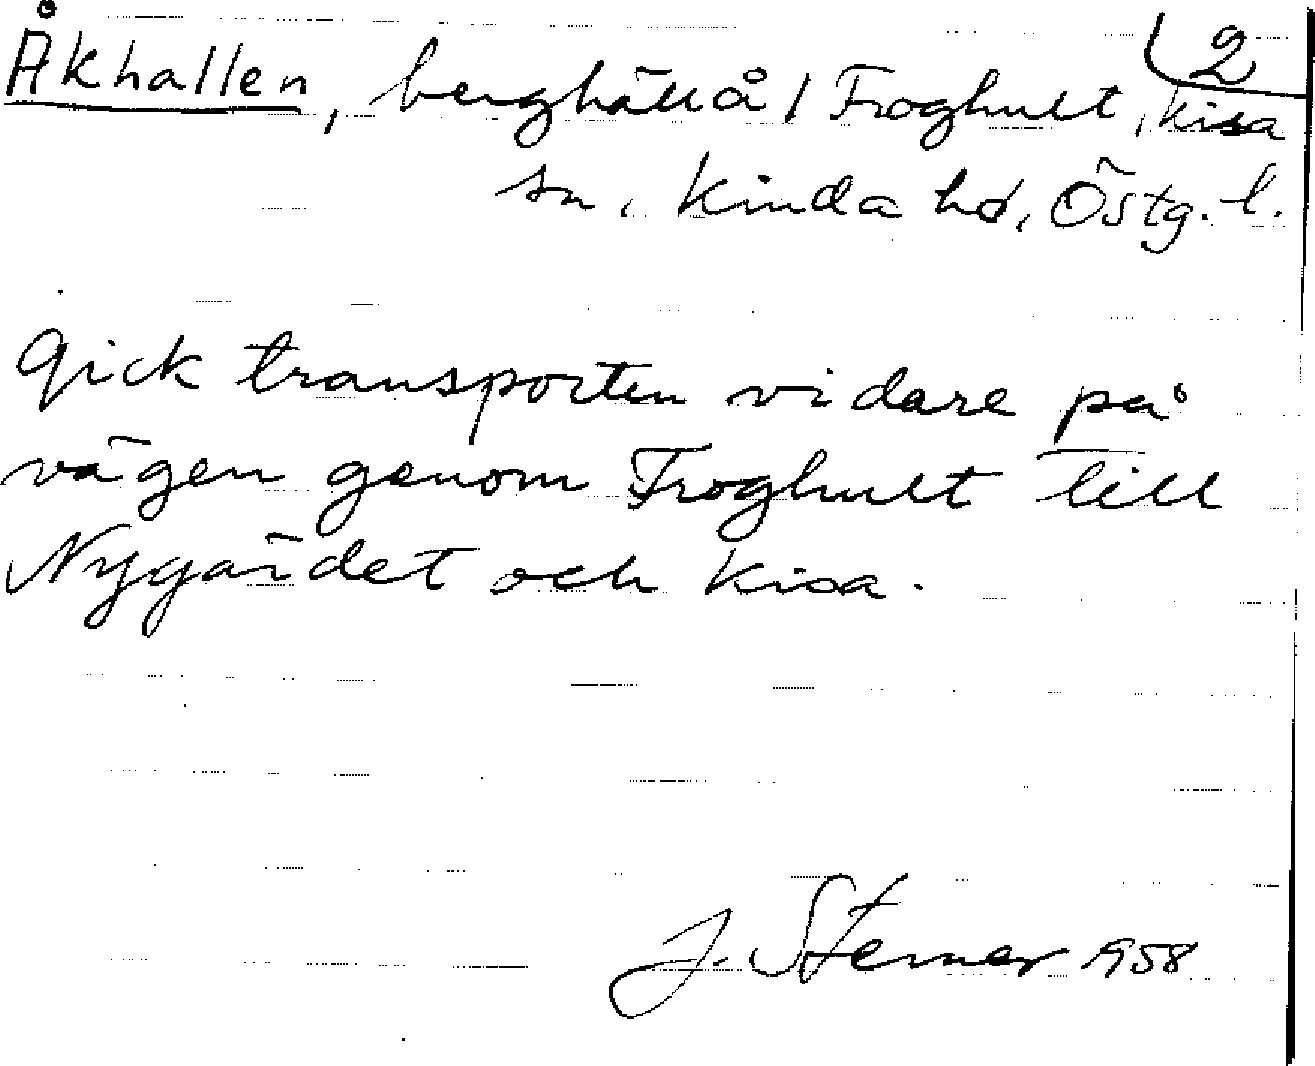 2
Åkhallen, berghäll å / Froghult, Kisa
sn, Kinda hd, Östg. l.
gick transporten vidare på
vägen genom Froghult till
Nygärdet och Kisa.
J. Sterner 1958